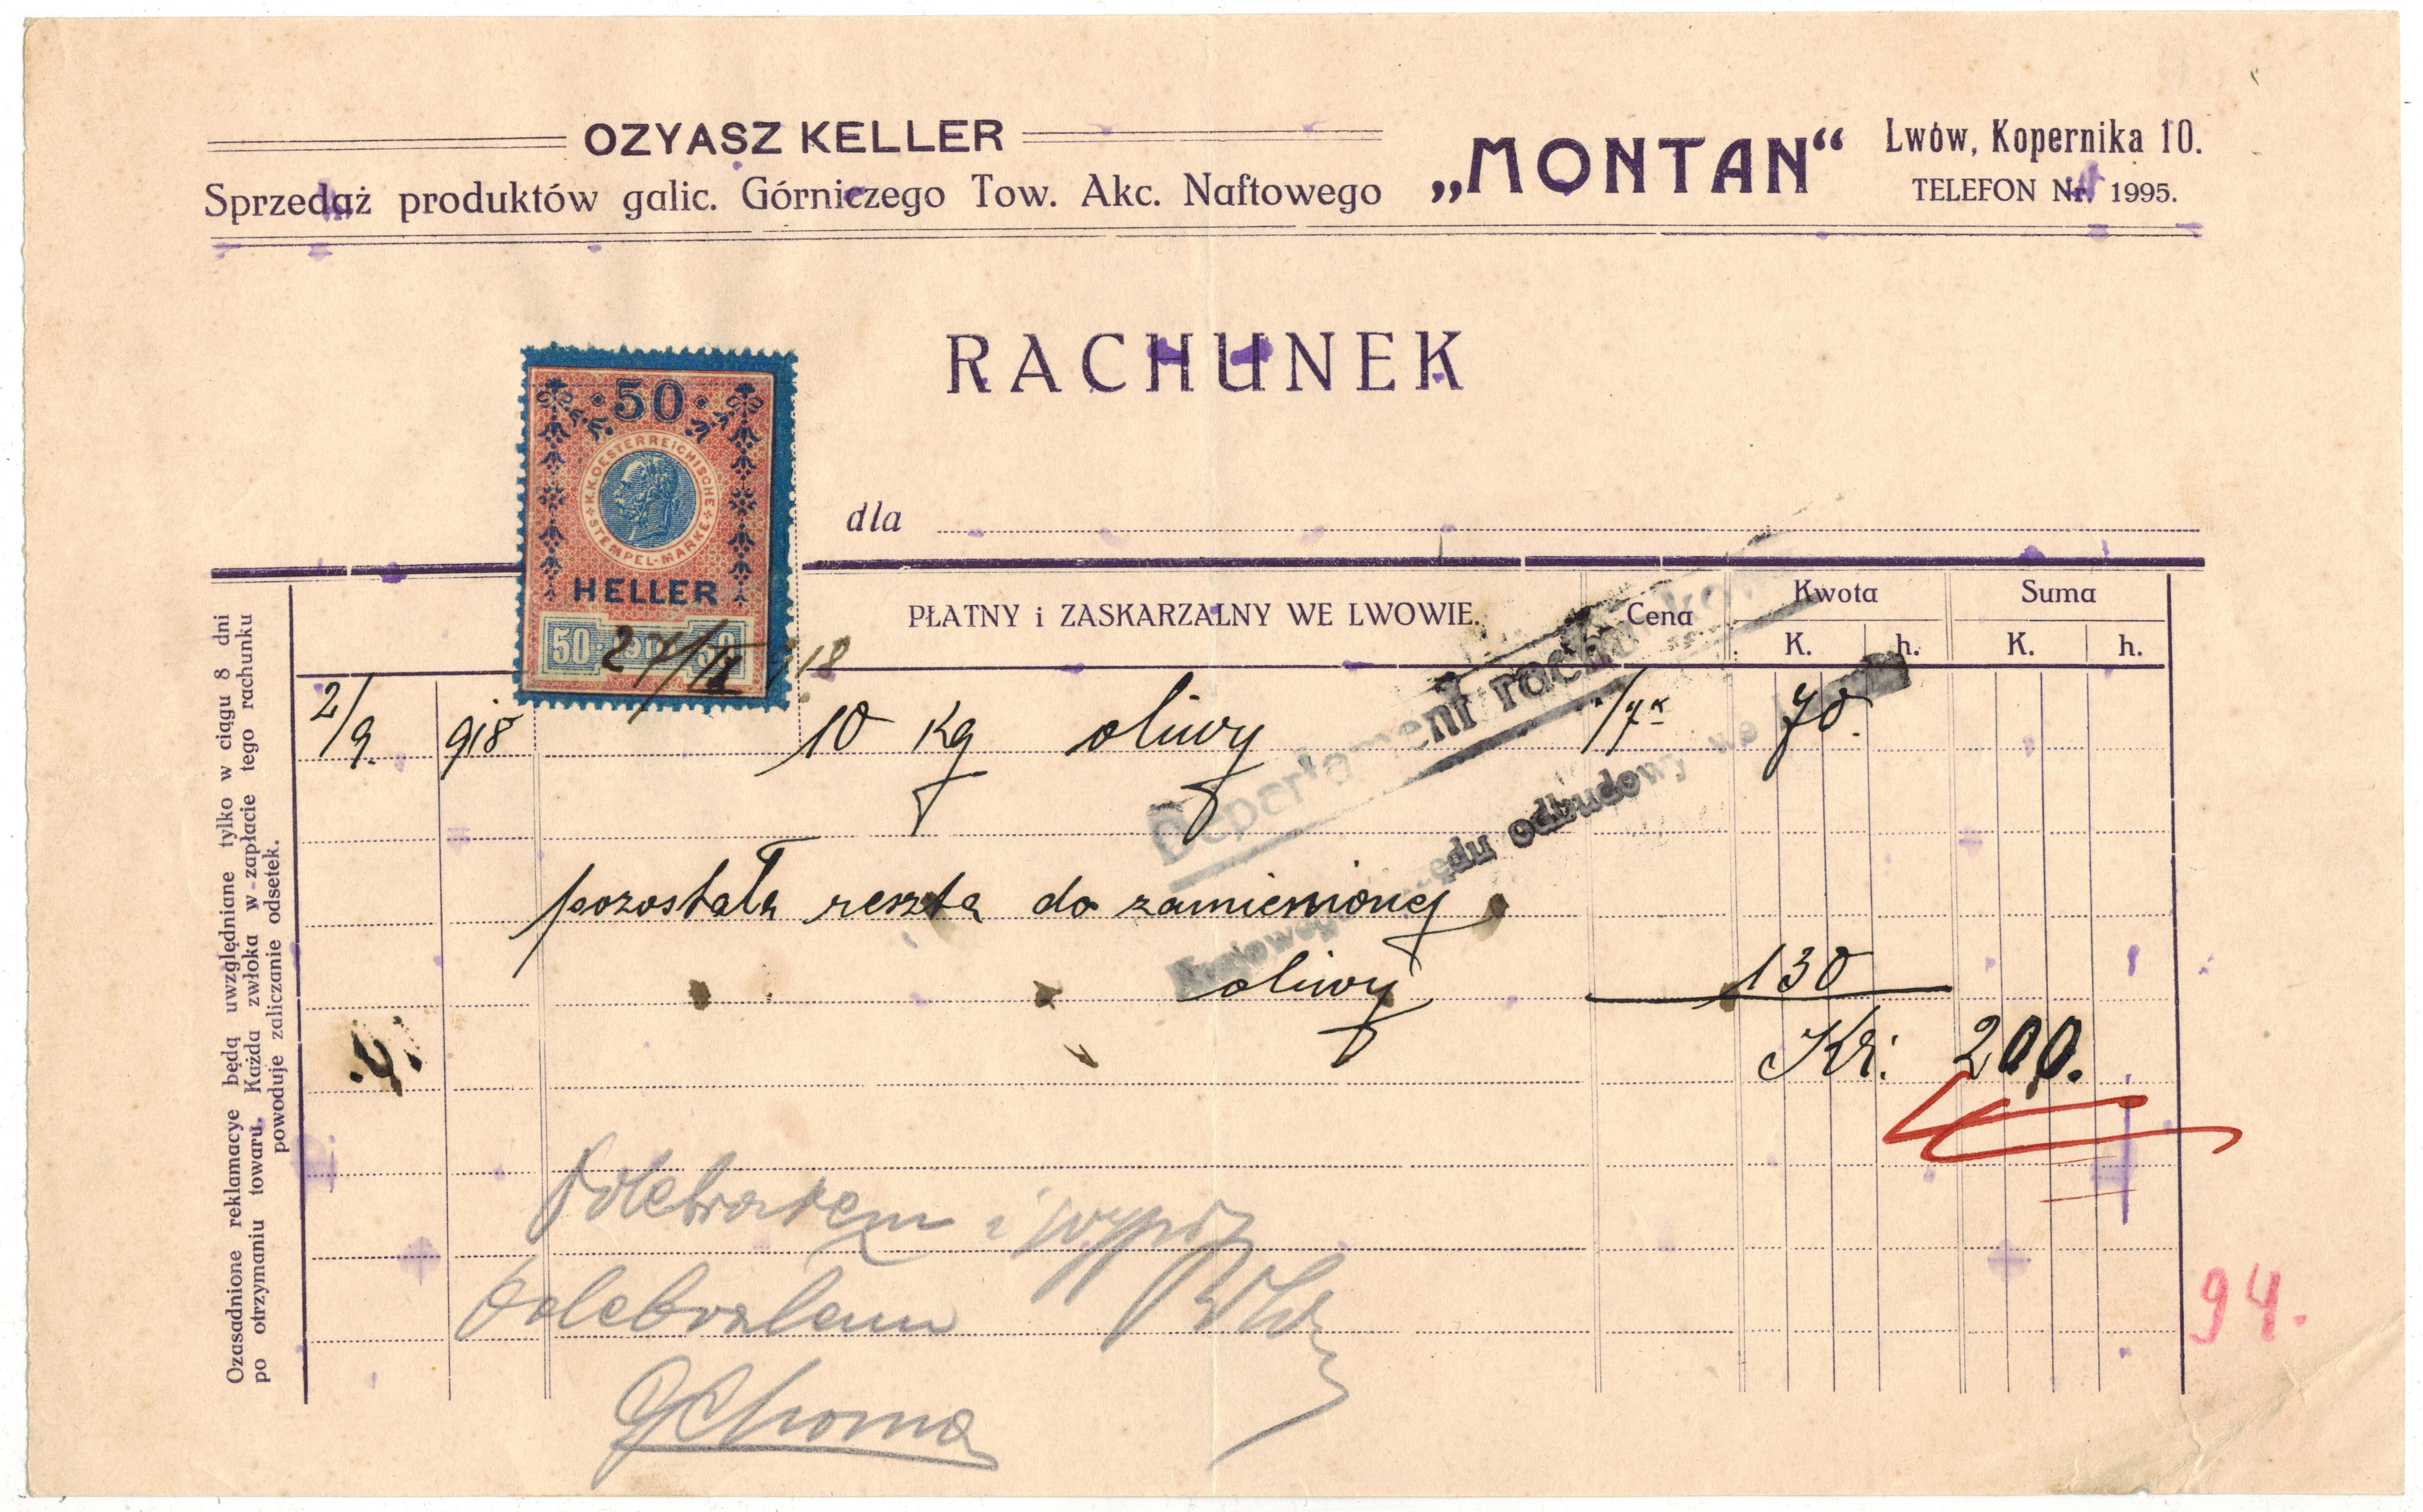 OZYASZ KELLER
Sprzedaż produktów galic. Górniczego Tow. Akc. Naftowego
„MONTAN“
Lwów, Kopernika 10.
TELEFON Nr. 1995.
RACHUNEK
50
K.K. OESTERREICHISCHE
STEMPEL-MARKE
HELLER
50
27/IX 18
dla
PŁATNY i ZASKARZALNY WE LWOWIE.
Cena
Kwota
Suma
K. h.
K. h.
Departament
odbudowy we
2/9. 918 10 Kg oliwy /7K 70.
pozostała reszta do zamienionej
oliwy 130
Kr: 200.
Odebrałem
GChoma
94.
Ozasadnione reklamacye będą uwzględniane tylko w ciągu 8 dni
po otrzymaniu towaru. Każda zwłoka w zapłacie tego rachunku
powoduje zaliczanie odsetek.